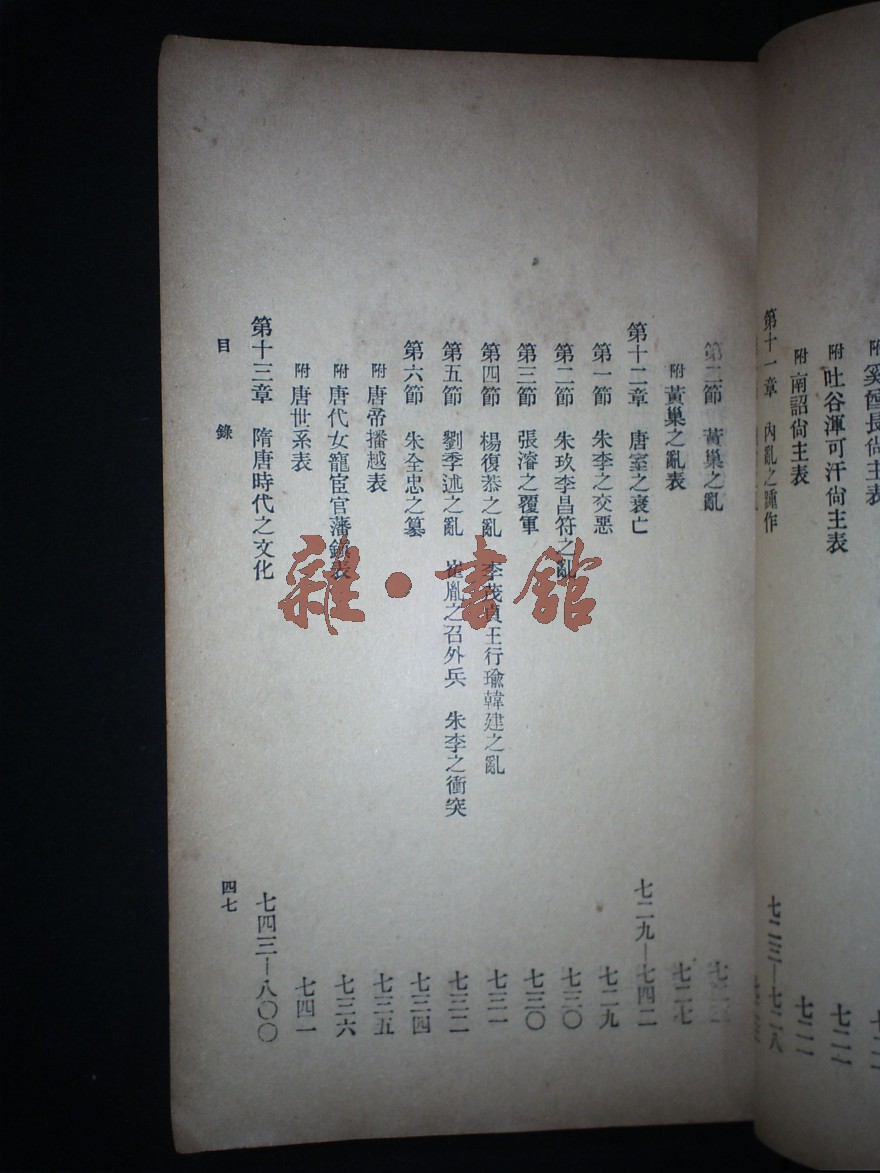 附 奚酋長尙主表 七二
附 吐谷渾可汗尙主表 七二一
附 南詔尙主表 七二一
第十一章 內亂之踵作 七二三—七二八
第二節 黃巢之亂
附 黃巢之亂表 七二七
第十二章 唐室之衰亡 七二九—七四二
第一節 朱李之交惡 七二九
第二節 朱玫李昌符之亂 七三〇
第三節 張濬之覆軍 七三〇
第四節 楊復恭之亂 李茂貞王行瑜韓建之亂 七三一
第五節 劉季述之亂 崔胤之召外兵 朱李之衝突 七三二
第六節 朱全忠之篡 七三四
附 唐帝播越表 七三五
附 唐代女寵宦官藩鎮表 七三六
附 唐世系表 七四一
第十三章 隋唐時代之文化 七四三—八〇〇
目 錄 四七
雜·書館